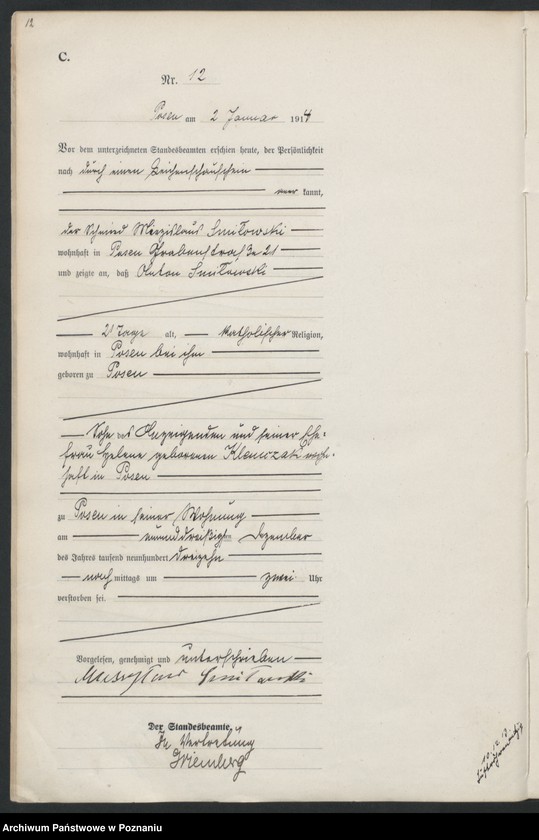 12
C.
Nr. 12
Posen am 2 Januar 1914
Vor dem unterzeichneten Standesbeamten erschien heute, der Persönlichkeit
nach durch einen Leichenschauschein
kannt,
der Schmied Mieczislaus Smitowski
wohnhaft in Posen Grabenstraße 21
und zeigte an, daß Anton Smitowski
21 Tage alt, katholischer Religion,
wohnhaft in Posen bei ihm
geboren zu Posen
Sohn des Anzeigenden und seiner Ehe=
frau Helene geborenen wohn=
haft in Posen
zu Posen in seiner Wohnung
am einunddreißigsten Dezember
des Jahres tausend neunhundert dreizehn
nach mittags um zwei Uhr
verstorben sei.
Vorgelesen, genehmigt und unterschrieben
Der Standesbeamte.
In Vertretung
Archiwum Państwowe w Poznaniu